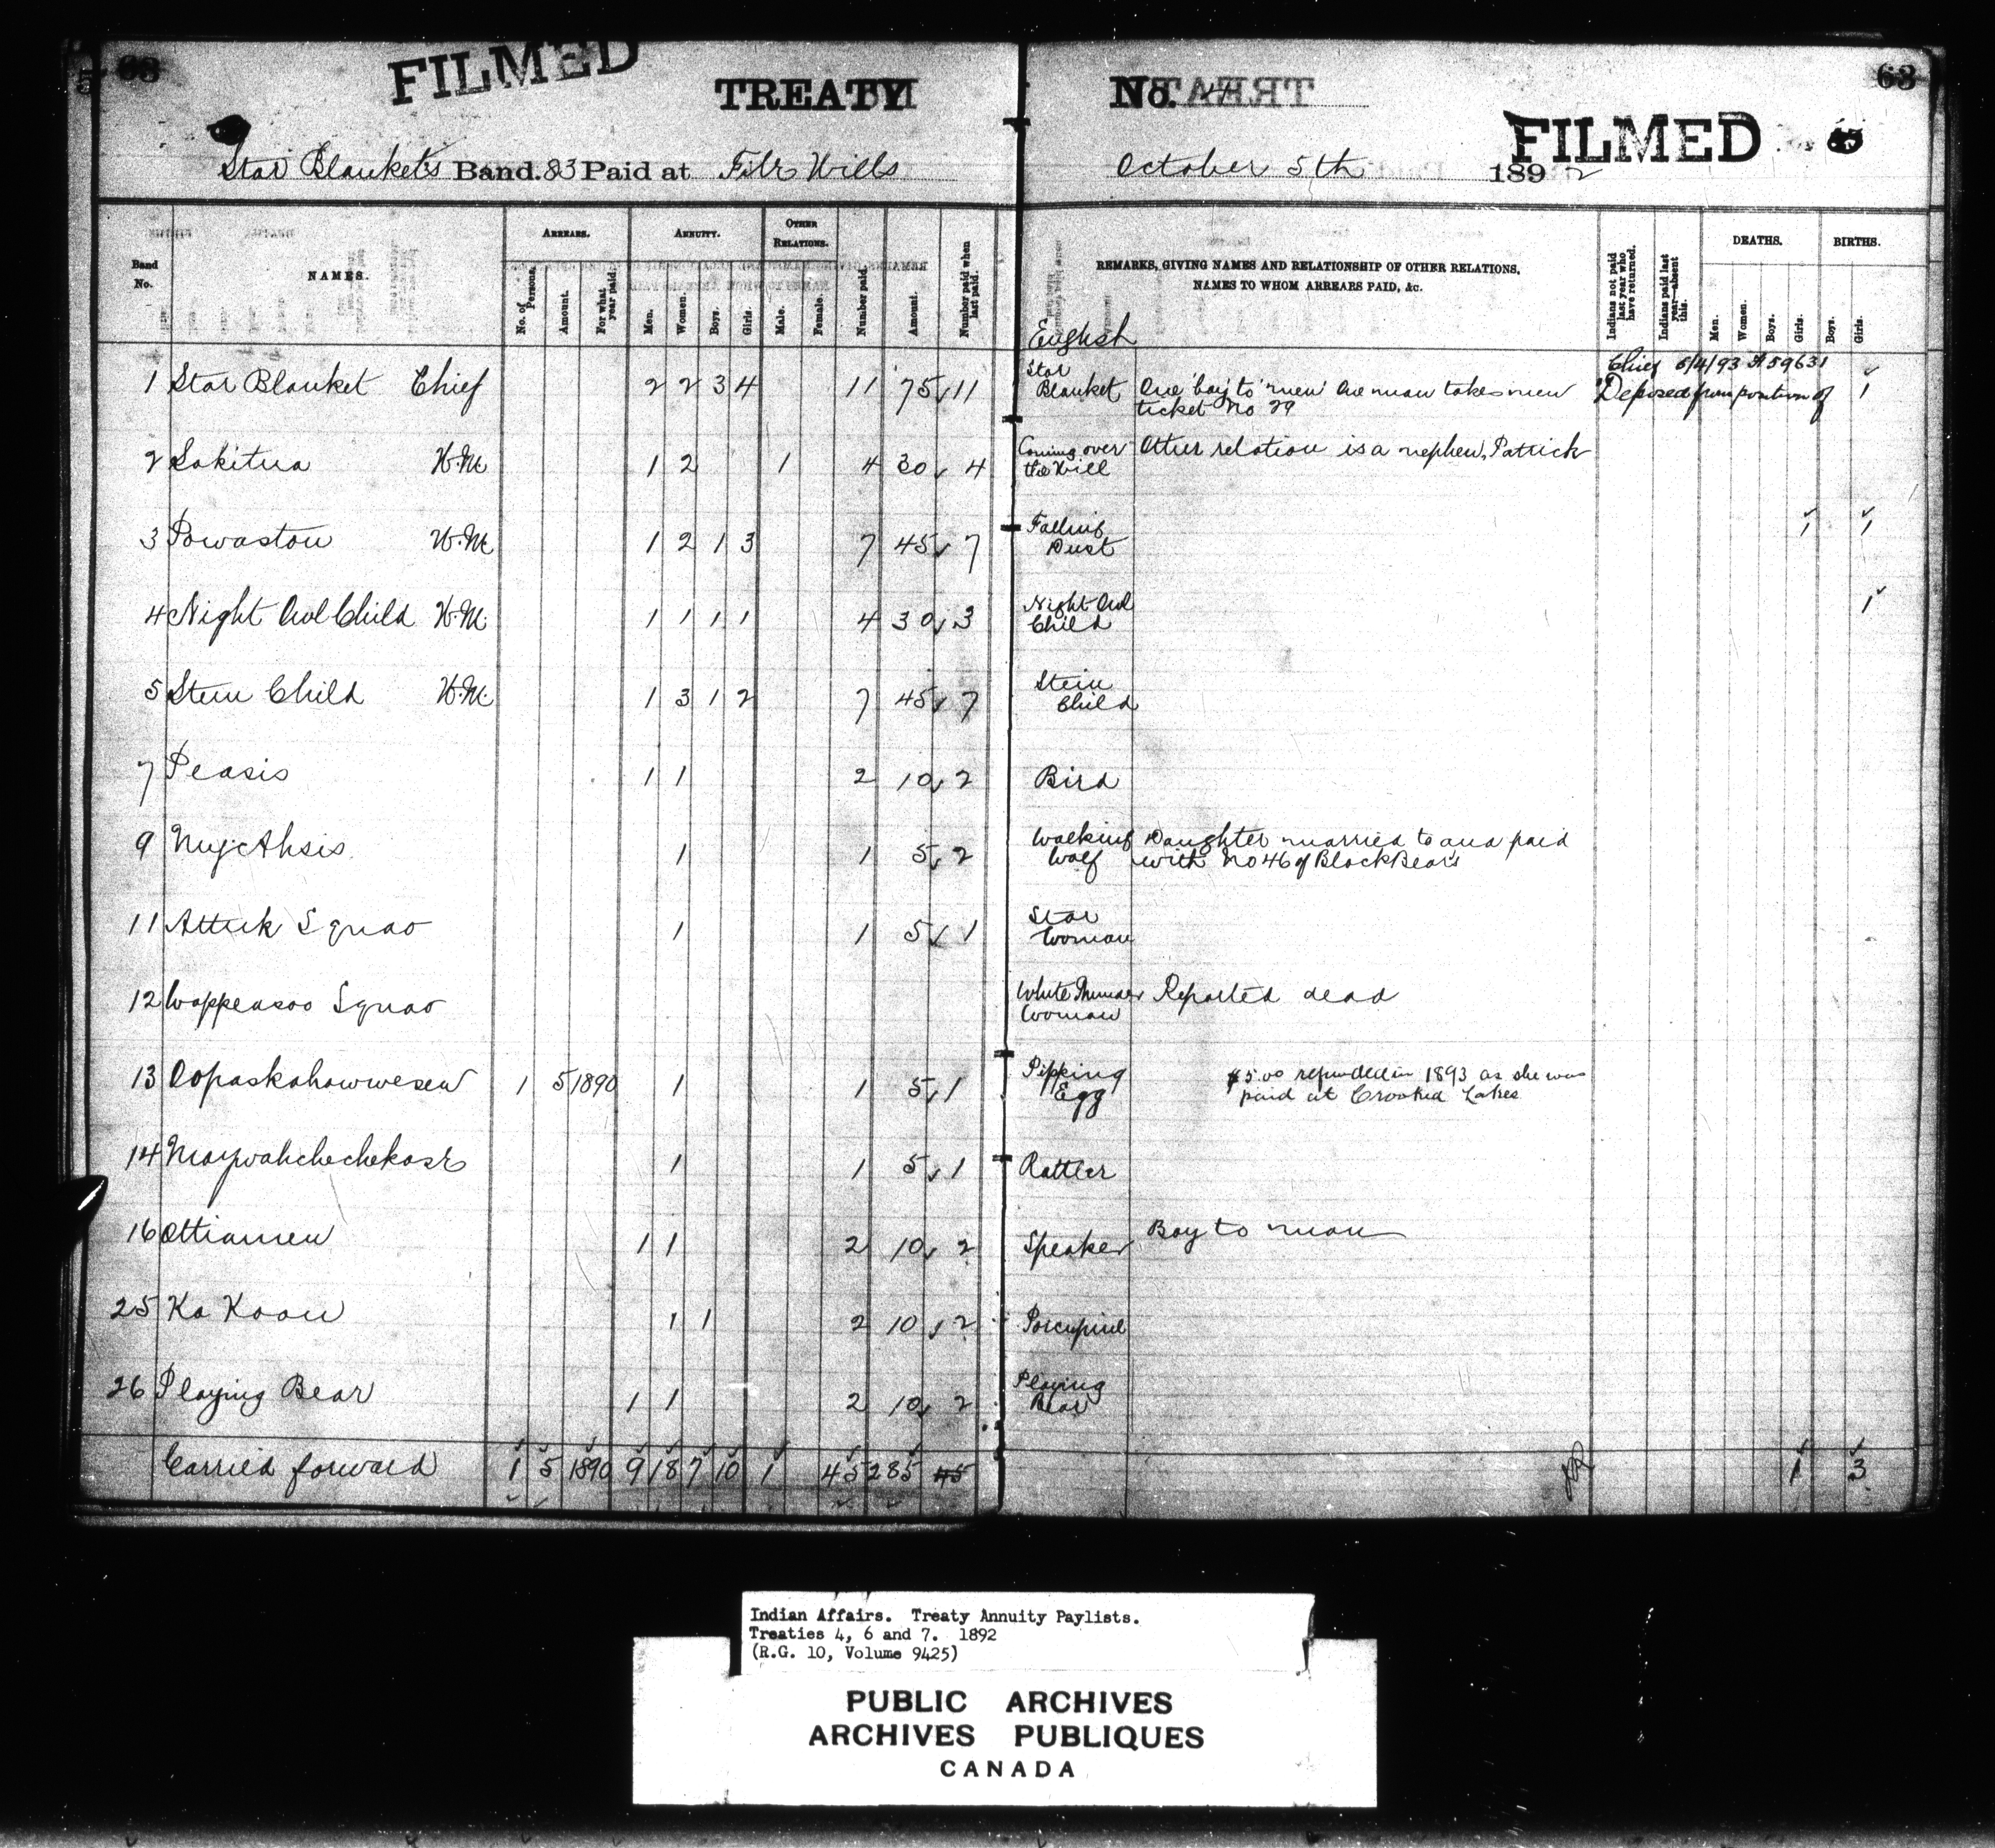 63
FILMED
TREATY
No. 4
63
FILMED
Star Blankets Band. 83 Paid at File Hills
October 5th 1892
Band No.
NAMES.
ARREARS.
No. of Persons.
Amount.
For what year paid.
ANNUITY.
Men.
Women.
Boys.
Girls.
OTHER RELATIONS.
Male.
Female.
Number paid.
Amount.
Number paid when last paid.
English
REMARKS, GIVING NAMES AND RELATIONSHIP OF OTHER RELATIONS,
NAMES TO WHOM ARREARS PAID, &c.
Indians not paid last year who have returned.
Indians paid last year—absent this.
DEATHS.
Men.
Women.
Boys.
Girls.
BIRTHS.
Boys.
Girls.
1 Star Blanket Chief 2 2 3 4 11 75 11 Star Blanket One 'boy' to 'men' One man takes new ticket No 29 Deposed from position of Chief 5/4/93 A 59631 1
2 Sakitna H.M. 1 2 1 4 30 4 Coming over the Hill Other relation is a nephew, Patrick
3 Powaston H.M. 1 2 1 3 7 45 7 Falling Dust 1 1
4 Night Owl Child H.M. 1 1 1 1 4 30 3 Night Owl Child 1
5 Stem Child H.M. 1 3 1 2 7 45 7 Stem Child
7 Peasis 1 1 2 10 2 Bird
9 1 1 5 2 Walking Wolf Daughter married to and paid with No 46 of Black Bear's
11 Attuk Squao 1 1 5 1 Star Woman
12 Wappeasoo Squao White Thunder Woman Reported dead
13 Oopaskahowwesew 1 5 1890 1 1 5 1 Pipping Egg $5.00 refunded in 1893 as she was paid at Crooked Lakes
14 1 1 5 1 Rattler
16 Ottiamew 1 1 2 10 2 Speaker Boy to man
25 Ka Koou 1 1 2 10 2 Porcupine
26 Playing Bear 1 1 2 10 2 Playing Bear
Carried forward 1 5 1890 9 18 7 10 1 45 285 45 1 3
Indian Affairs. Treaty Annuity Paylists.
Treaties 4, 6 and 7. 1892
(R.G. 10, Volume 9425)
PUBLIC ARCHIVES
ARCHIVES PUBLIQUES
CANADA